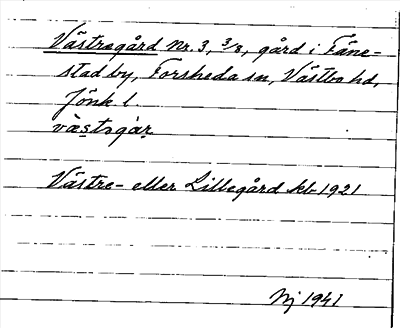 Västragård Nr. 3, 3/8, gård i Fåne-
stad by, Forsheda sn, Västbo hd,
Jönk. l
västəgår
Västre- eller Lillegård kb 1921
Nj 1941